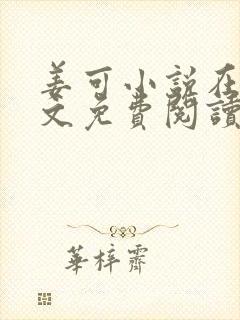 姜可小説在
文免費閱讀
華梓霽